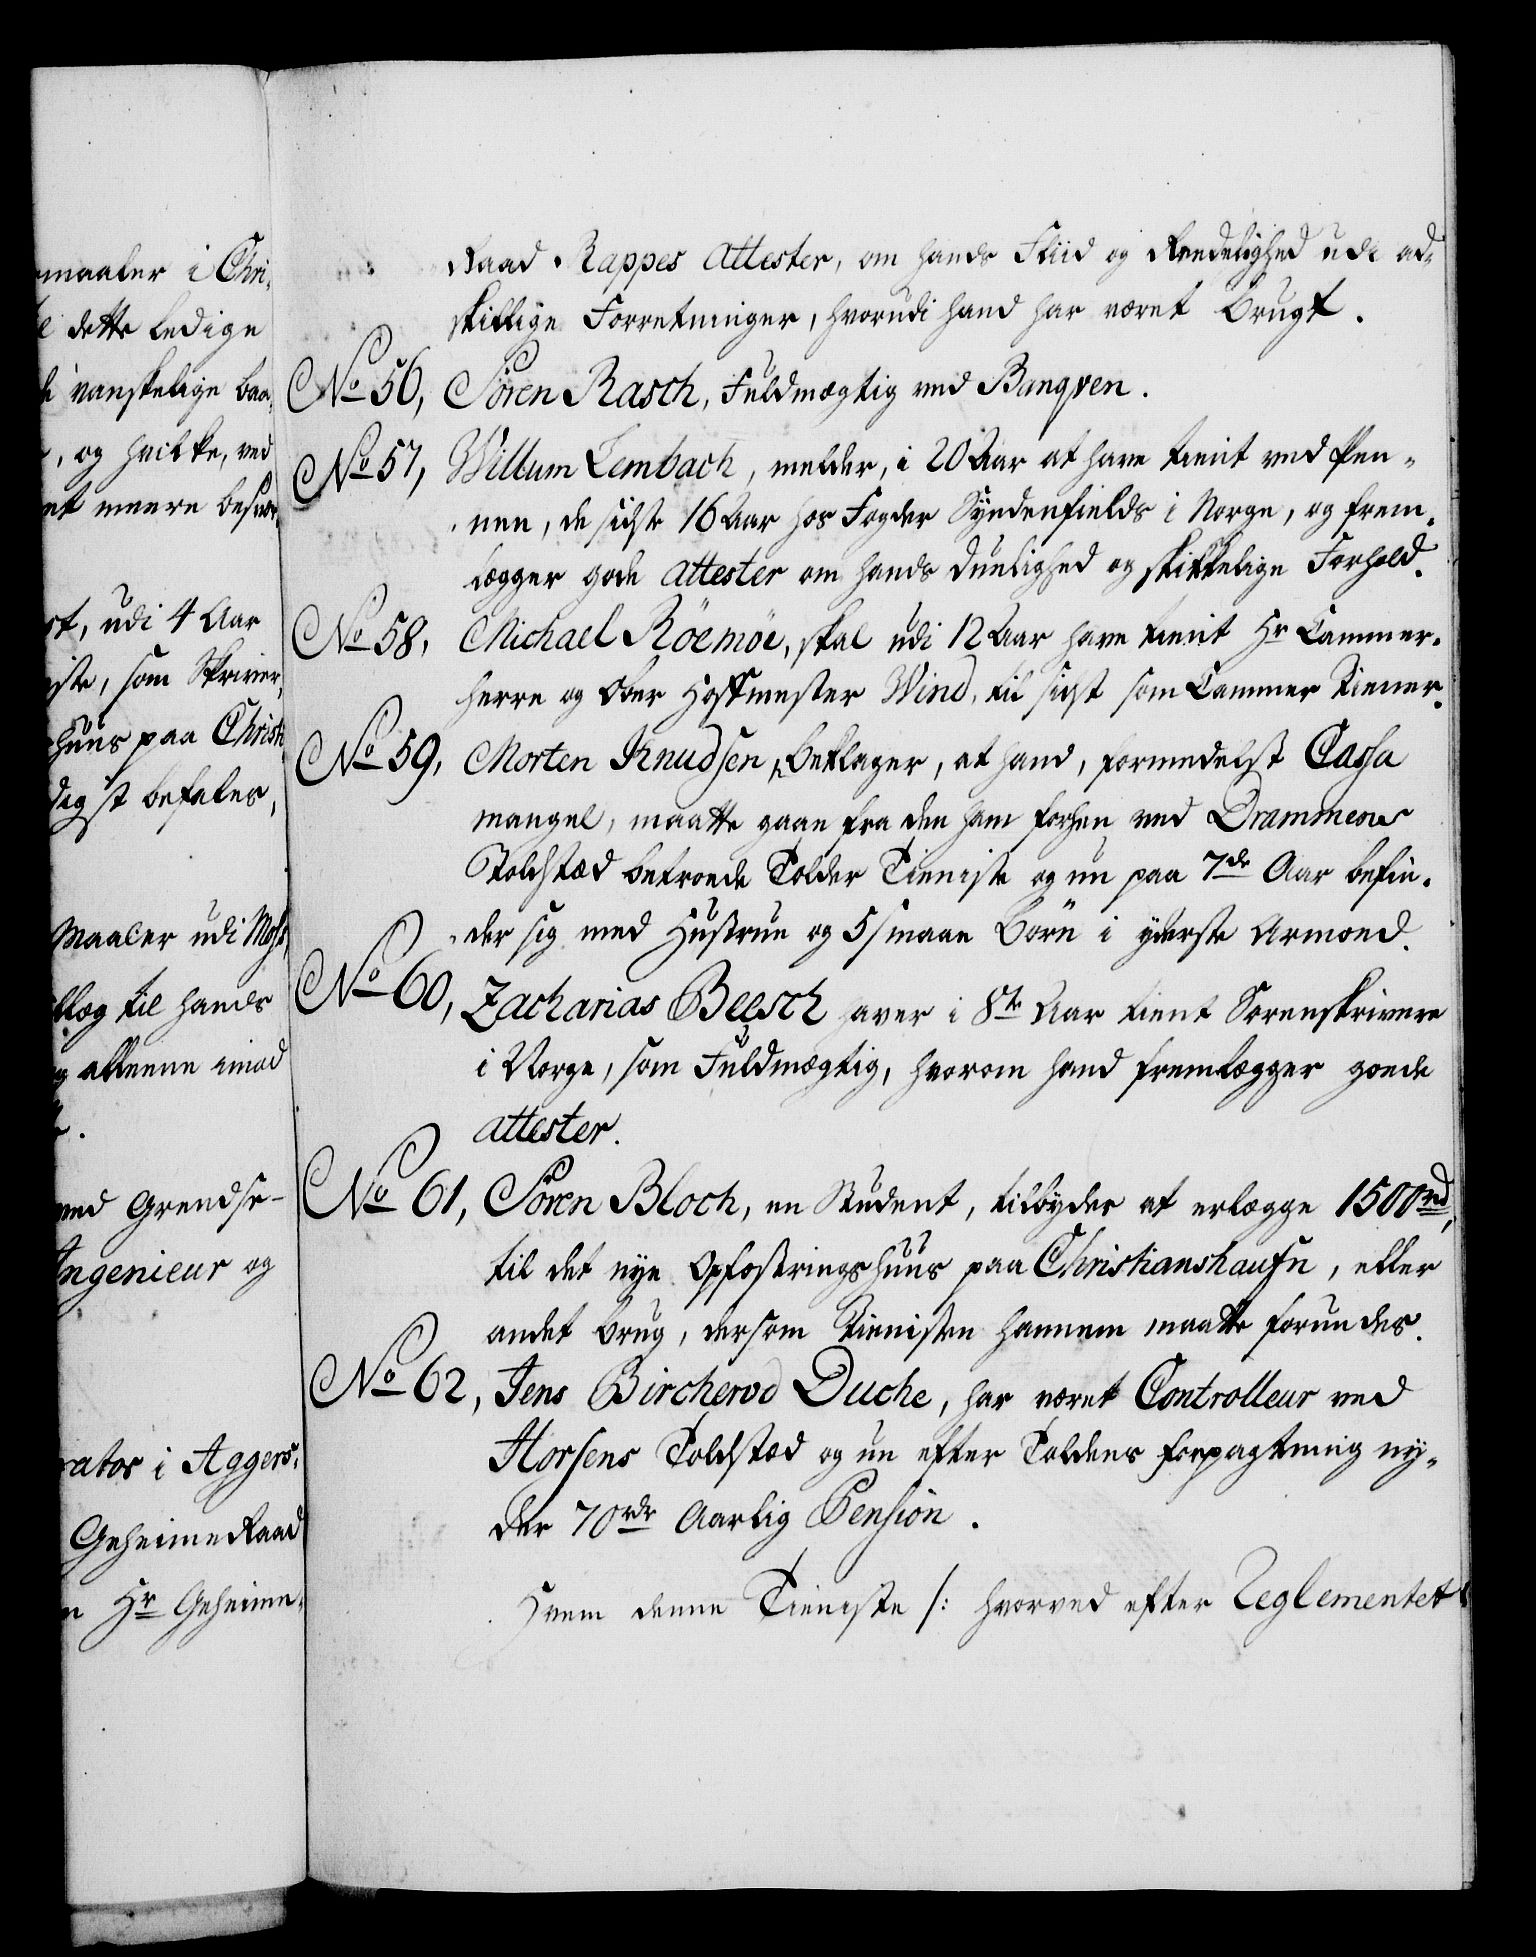 maaler i Chri-
dette ledige
vanskelige baa-
, og hvilke, ved
et meere besvær-
, udi 4 Aar
som Skriver,
huus paa Christi
digst befales,
Maaler udi Moss,
læg til hands
alleene imod
ved Grendse-
Ingenieur og
rator i Aggers-
Geheime Raad
Hr Geheime-
Raad Rappes Attester, om hands Fliid og Reedelighed udi ad-
skillige Forretninger, hvorudi hand har været brugt.
No 56, Sören Rasch, Fuldmægtig ved Banqven.
No 57, Willum Lembach, melder, i 20 Aar at have tient ved Pen-
nen, de sidste 16 Aar hos Fogder Syndenfields i Norge, og frem-
lægger gode Attester om hands duelighed og skikkelige Forhold.
No 58, Michael Röemöe, skal udi 12 Aar have tient Hr Cammer-
herre og Ober Hoffmester Wind, til sidst som Cammer Tiener.
No 59, Morten Knudsen, beklager, at hand, formedelst Cassa
mangel, maatte gaae fra den ham forhen ved Drammens
Toldstæd betroede Tolder Tieniste og nu paa 7de Aar befin-
der sig med Hustrue og 5 smaae Börn i yderste Armoed.
No 60, Zacharias Beesch haver i 8te Aar tient Sorenskrivere
i Norge, som Fuldmægtig, hvorom hand fremlægger goede
attester.
No 61, Sören Bloch, en Student, tilbyder at erlægge 1500 rd,
til det nye Opfostringshuus paa Christianshaufn, eller
andet brug, dersom Tienisten hannem maatte forundes.
No 62, Jens Bircherod Duche, har været Controlleur ved
Horsens Toldstæd og nu efter Toldens forpagtning ny-
der 70 rdr Aarlig Pension.
Hvem denne Tieniste /: hvorved efter Reglementet